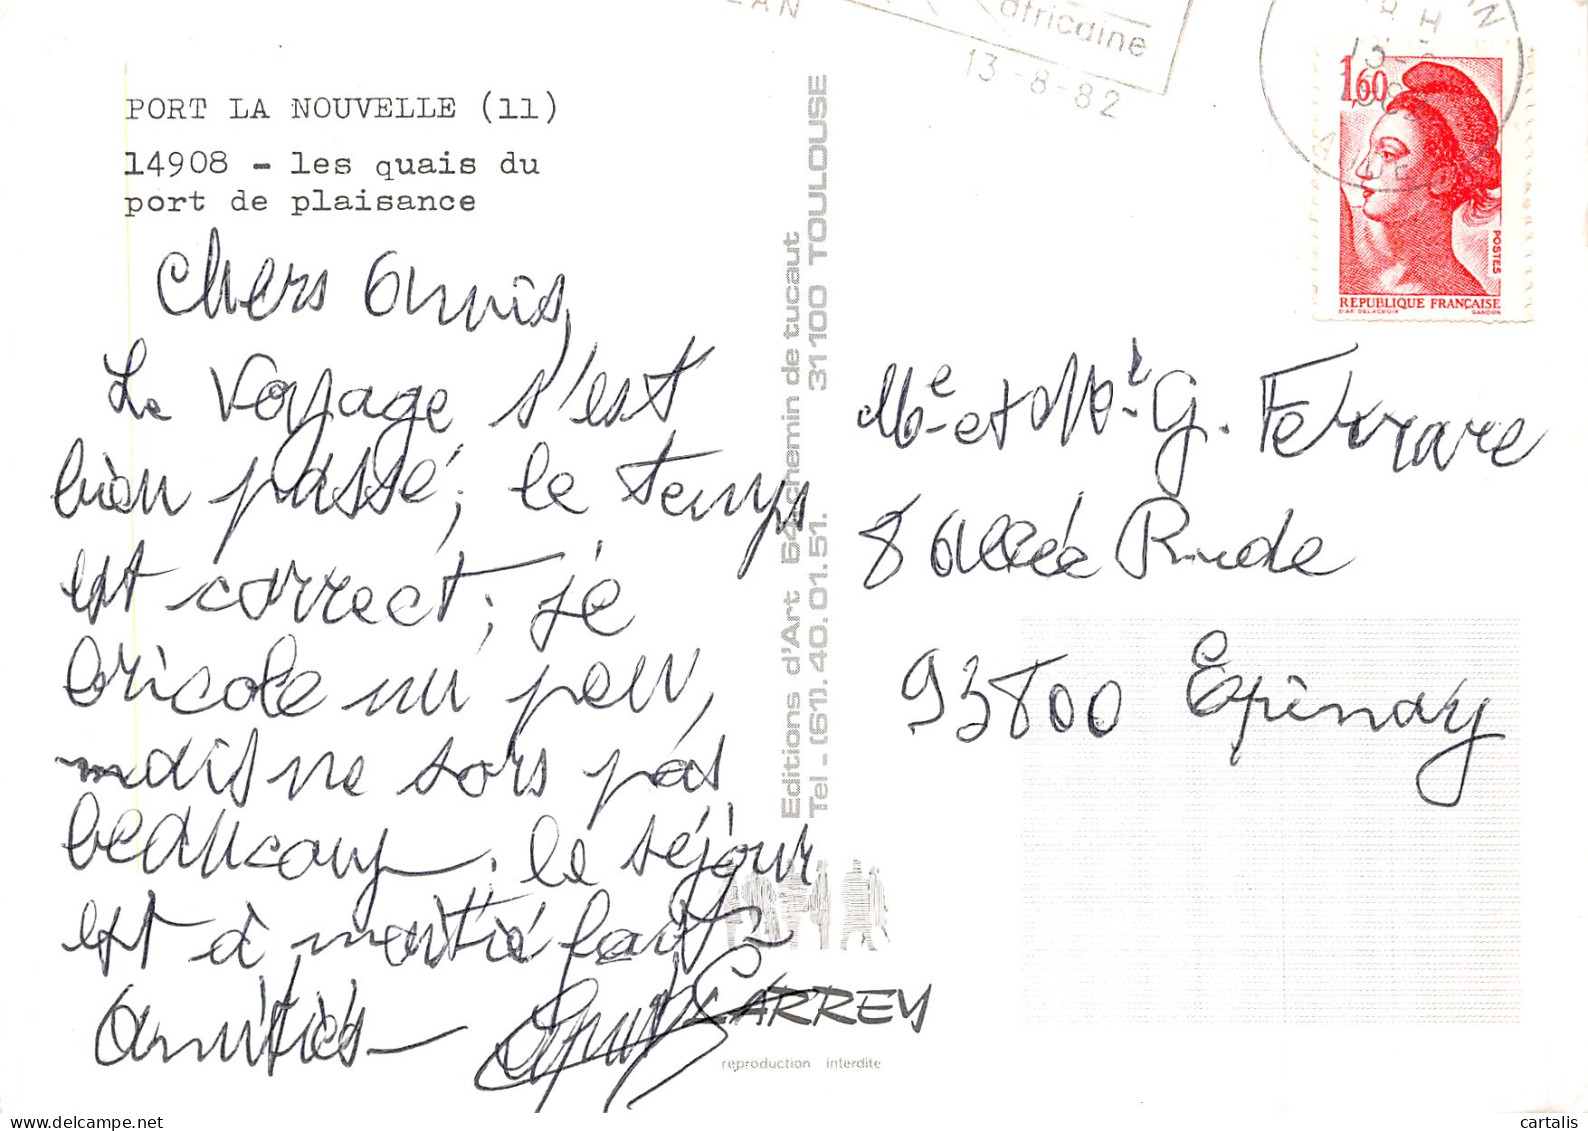 africaine
13-8-82
PORT LA NOUVELLE (11)
14908 - les quais du
port de plaisance
Chers Amis,
Le voyage s'est
bien passé, le temps
est correct, je
bricole un peu,
mais ne sors pas
beaucoup. le séjour
est à moitié fait
Amitiés
Editions d'Art 64 chemin de tucaut 31100 TOULOUSE
Tel - (61). 40. 01. 51.
LARREY
reproduction interdite
1,60
POSTES
REPUBLIQUE FRANÇAISE
D'AP. DELACROIX GANDON
AUDE
Me et Mr G. Ferrare
8 Allée Rude
93800 Epinay
cartalis